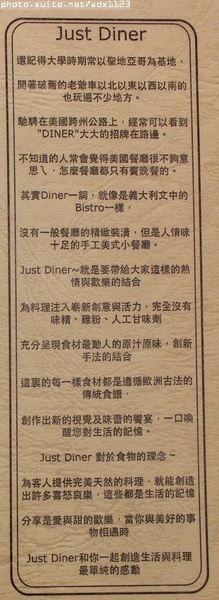 photo.xuite.net/wdx1123
Just Diner
還記得大學時期常以聖地亞哥為基地，
開著破舊的老爺車以北以東以西以南的
也玩遍不少地方。
馳騁在美國跨州公路上，經常可以看到
"DINER"大大的招牌在路邊。
不知道的人常會覺得美國餐廳很不夠意
思ㄟ，怎麼餐廳都只有賣晚餐的。
其實Diner一詞，就像是義大利文中的
Bistro一樣，
沒有一般餐廳的精緻裝潢，但是人情味
十足的手工美式小餐廳。
Just Diner~就是要帶給大家這樣的熱
情與歡樂的結合
為料理注入嶄新創意與活力，完全沒有
味精、雞粉、人工甘味劑
充分呈現食材最動人的原汁原味，創新
手法的結合
這裏的每一樣食材都是遵循歐洲古法的
傳統食譜，
創作出新的視覺及味蕾的饗宴，一口喚
醒您對生活的記憶。
Just Diner 對於食物的理念～
為客人提供完美天然的料理，就能創造
出許多喜怒哀樂，這些都是生活的記憶
分享是愛與甜的歡樂，當你與美好的事
物相遇時
Just Diner和你一起創造生活與料理
最單純的感動